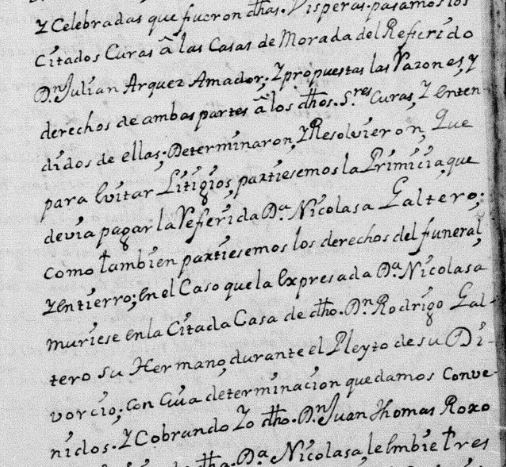 Y Celebradas que fueron dhas. Visperas. pasamos los
Citados Curas â las Casas de Morada del Referido
Dn. Julian Arquez Amador; Y propuestas las Razones, y
derechos de ambas partes â los dhos. Sres. Curas, Y enten
didos de ellas; Determinaron, Y Resolvieron, Que
para Evitar Litigios, partiesemos la Primicia, que
devia pagar la Referida Da. Nicolasa Galtero;
Como tambien partiesemos los derechos del funeral,
Y entierro; En el Caso que la Expresada Da. Nicolasa
muriese en la Citada Casa de dho. Dn. Rodrigo Gal-
tero su Hermano, durante el Pleyto de su Di-
vorcio; Con Cuia determinacion quedamos Conve-
nidos. Y Cobrando Yo dho. Dn. Juan Thomas Roxo
dha. Da. Nicolasa, le Embie tres